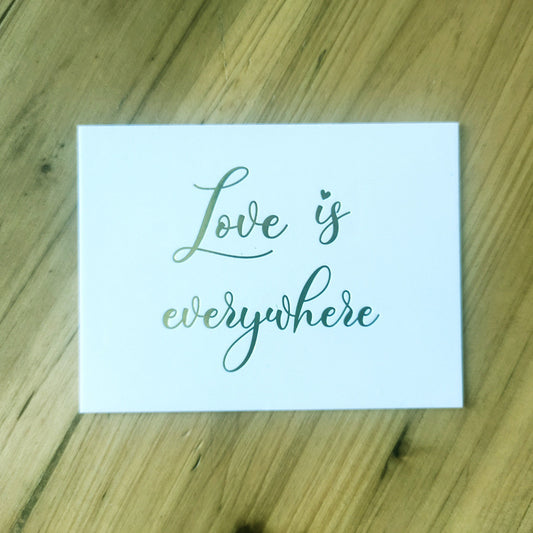 Love is
everywhere